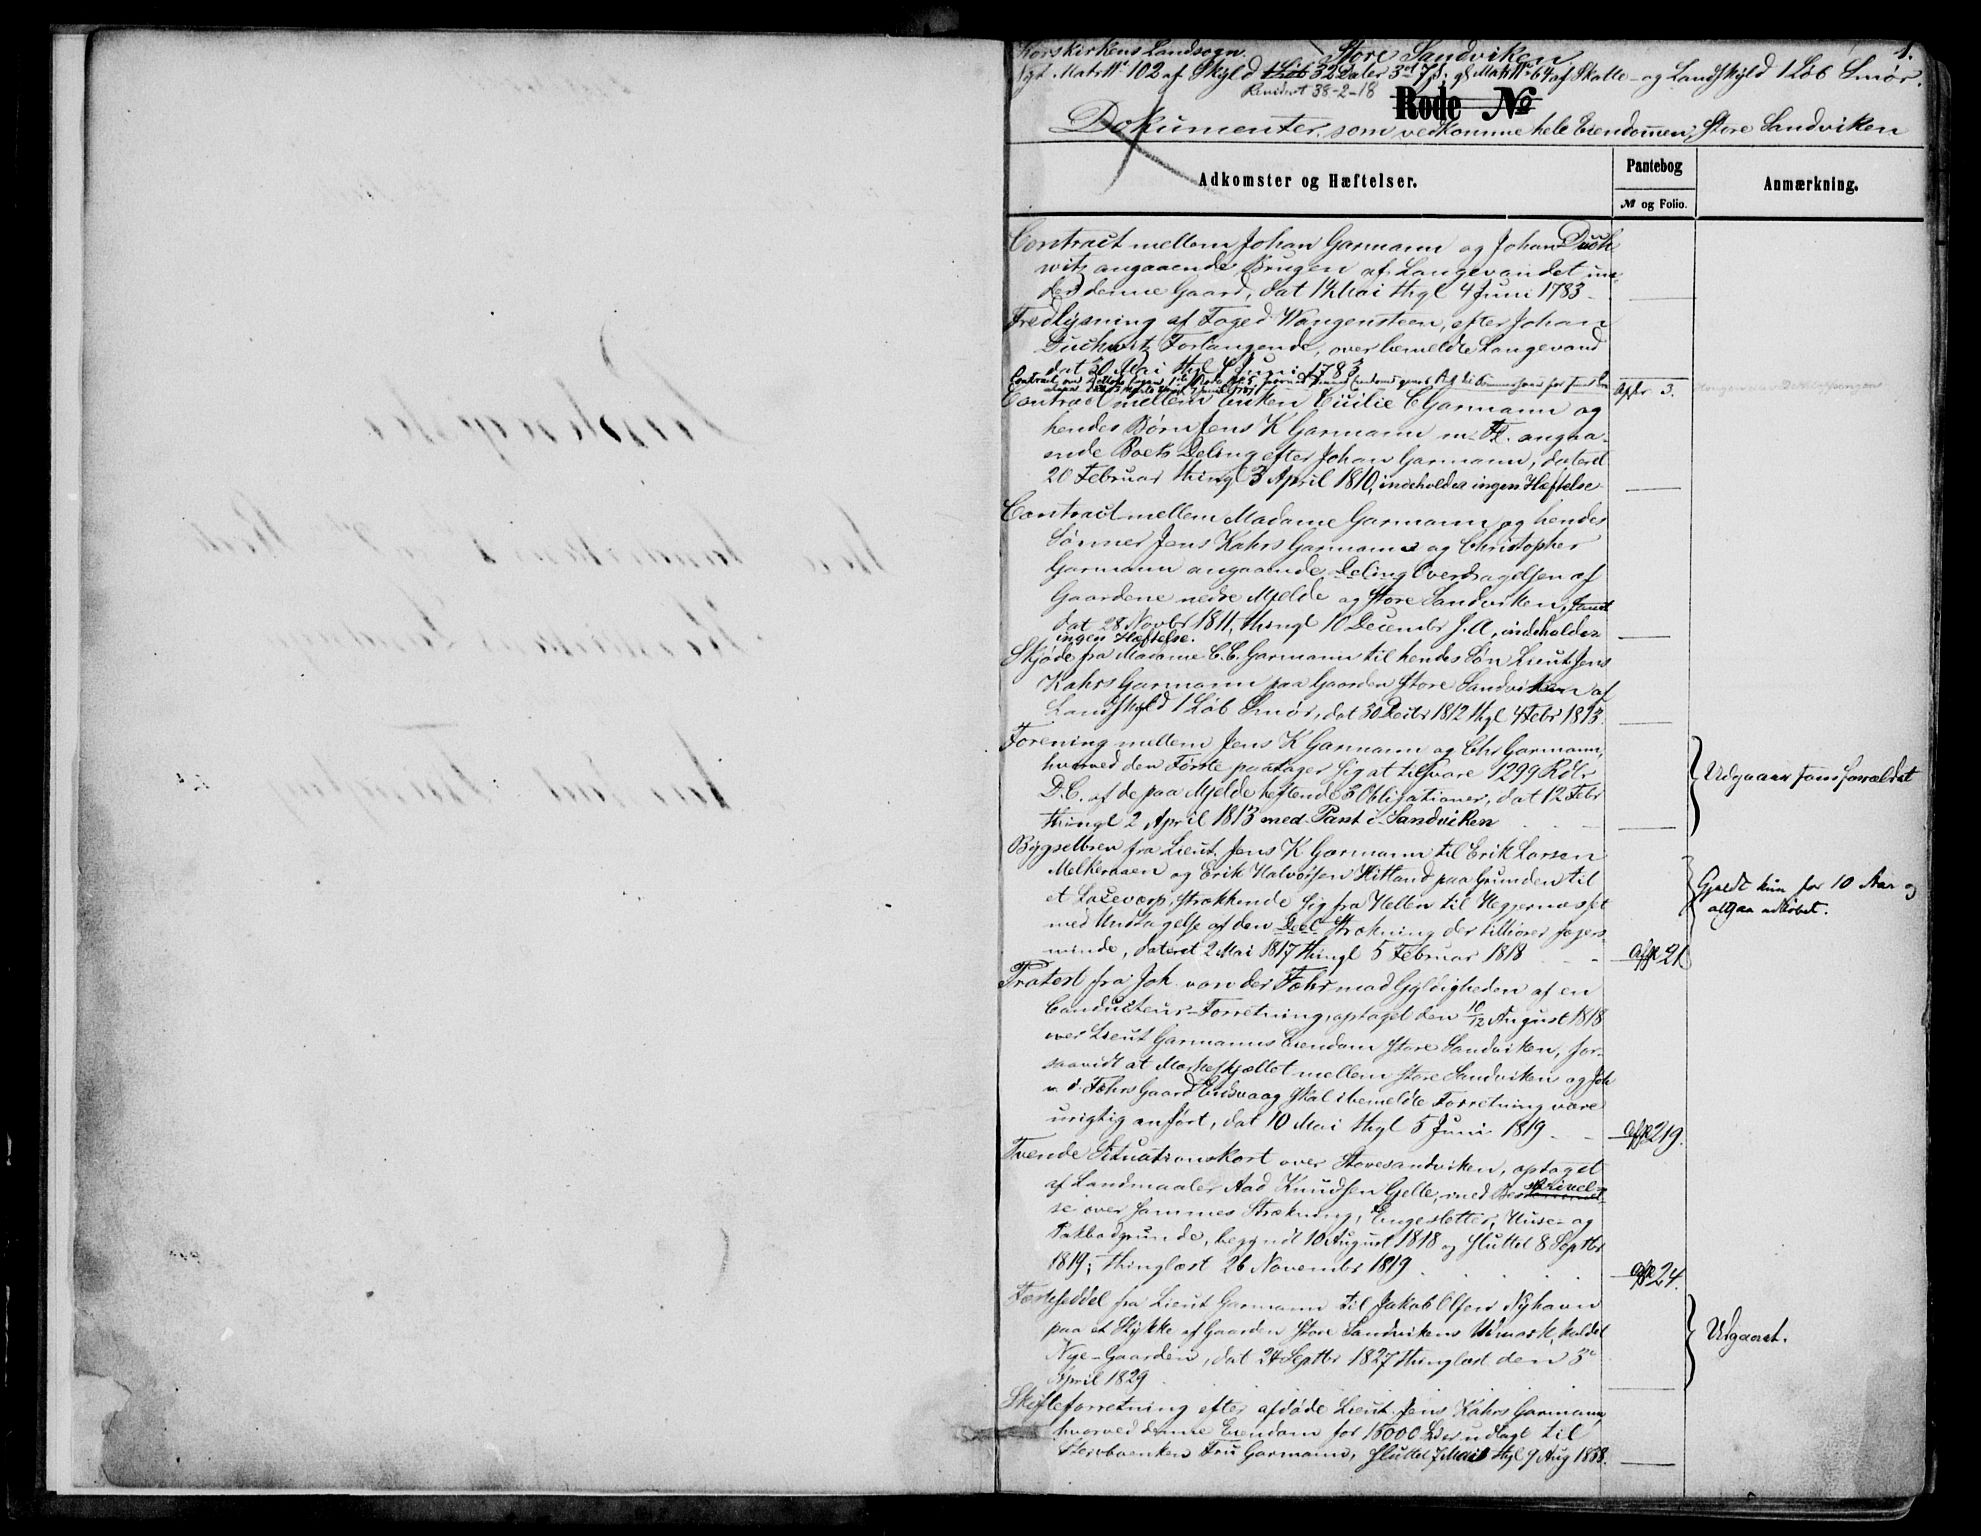 Korskirkens Landsogn. Store Sandviken. 1.
Nyt Matr № 102 af Skyld 1 Løb 32 Daler 3 ort 7 s. gl Matr № 64 af Skatte- og Landskyld 1 Løb Smør.
Revideret 38-2-18
Rode №
Dokumenter, som vedkomme hele Eiendommen, Store Sandviken
Adkomster og Hæftelser.
Pantebog
№ og Folio.
Anmærkning.
Contract mellem Johan Garmann og Johan Duch
witz angaaende Brugen af Langevandet un-
der denne Gaard, dat 14 Mai thgl 4 Juni 1783
Fredlysning af Foged Wangensteen, efter Johan
Duchwitz Forlangende, over bemeldte Langevand
dat 20 Mai thgl 4 Juni 1783
Contract mellem Enken Cecilie C Garmann og
hendes Børn Jens K Garmann m. Fl. angaa-
ende Boets Deling efter Johan Garmann, dateret
20 Februar thingl 3 April 1810, indeholder ingen Hæftelse
Contract mellem Madame Garmann og hendes
Sønner Jens Kahrs Garmann og Christopher
Garmann angaaende Deling Overdragelsen af
Gaardene nedre Mjelde og Store Sandviken, samt
dat 28 Novbr 1811, thingl 10 December s. A, indeholder
ingen Hæftelse.
Skjøde fra Madame C. C. Garmann til hendes Søn Lieut. Jens
Kahrs Garmann paa Gaarden Store Sandviken af
Landskyld 1 Løb Smør, dat 30 Decbr 1812 thgl 4 Febr 1813
Forening mellem Jens K Garmann og Chr Garmann,
hvorved den Første paatager sig at tilsvare 1299 Rdlr
D. C. af de paa Mjelde heftende 3 Obligationer, dat 12 Febr
thingl 2 April 1813 med Pant i Sandviken
Udgaaer som forældet
Bygselbrev fra Lieut. Jens K Garmann til Erik Larsen
Melkeraaen og Erik Halvorsen Hitland paa Grunden til
et Laxevarp, strækkende sig fra Hellen til Heggernæsset
med Undtagelse af den Deel Strækning der tilhører Jægers-
minde, dateret 2 Mai 1817 thingl 5 Februar 1818
aff 21
Gjeldt kun for 10 Aar og
altsaa udløbet.
Protest fra Joh. von der Fehr mod Gyldigheden af en
Conducteur-Forretning, optaget den 10/12 August 1818
over Lieut Garmanns Eiendom Store Sandviken, for-
saavidt at Markeskjællet mellem Store Sandviken og Joh
v. d. Fehrs Gaard Eidsvaag skal i bemeldte Forretning være
urigtig anført, dat 10 Mai thgl 5 Juni 1819
aff 219.
Tvende Situationskort over Store Sandviken, optaget
af Landmaaler Aad Knudsen Gjelle, med Beskrivel-
se over sammes Strækning, Engesletter, Huse- og
Pakbodgrunde, begyndt 10 August 1818 og sluttet 8 Septbr
1819; thinglæst 26 November 1819
aff 24.
Fæsteseddel fra Lieut Garmann til Jakob Olsen Nyhavn
paa et Stykke af Gaarden Store Sandvikens Udmark, kaldet
Nye-Gaarden, dat 24 Septbr 1827 thinglæst den 3e
April 1829
Udgaaet.
Skifteforretning efter afdøde Lieut. Jens Kahrs Garmann,
hvorved denne Eiendom for 15000 Sdlr udlagt til
Stervboenken Fru Garmann, sluttet 7 Mai thgl 9 Aug 1838.